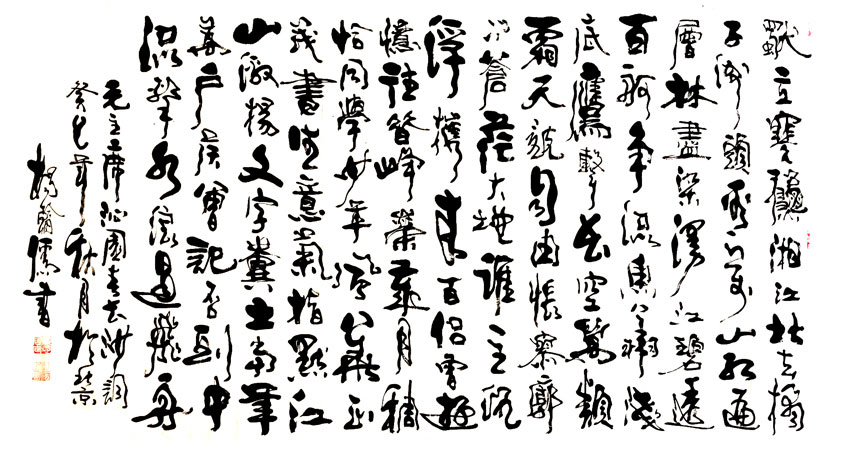 獨立寒秋湘江北去橘
子洲頭看万山红遍
層林盡染漫江碧透
百舸争流魚翔淺
底鷹擊長空萬類
霜天競自由悵寥廓
问蒼茫大地誰主沉
浮携来百侣曾遊
憶往昔崢嶸歲月稠
恰同學少年風華正
茂書生意氣指點江
山激揚文字糞土當年
萬户侯曾記否到中
流擊水浪遏飛舟
毛主席沁園春长沙詞
癸巳年秋月於北京
楊翰儒書